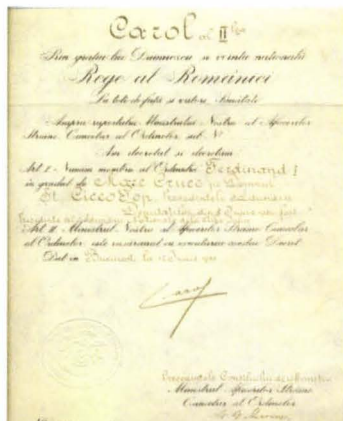 Carol al II lea
Prin gratia lui Dumnezeu si vointa nationala
Rege al României
La toti de fata si viitori, Sanatate
Asupra raportului Ministrului Nostru al Afacerilor
Straine, Cancelar al Ordinelor sub Nº
Am decretat si decretam
Art. I. Numim membru al Ordinului Ferdinand I
in gradul de Mare Cruce pe Domnul
St. Cicio Pop,
Art. II. Ministrul Nostru al Afacerilor Straine Cancelar
al Ordinelor, este insarcinat cu executarea acestui Decret.
Dat in Bucuresti la
Carol
Presedintele Consiliului de Ministri
Ministrul Afacerilor Straine
Cancelar al Ordinelor